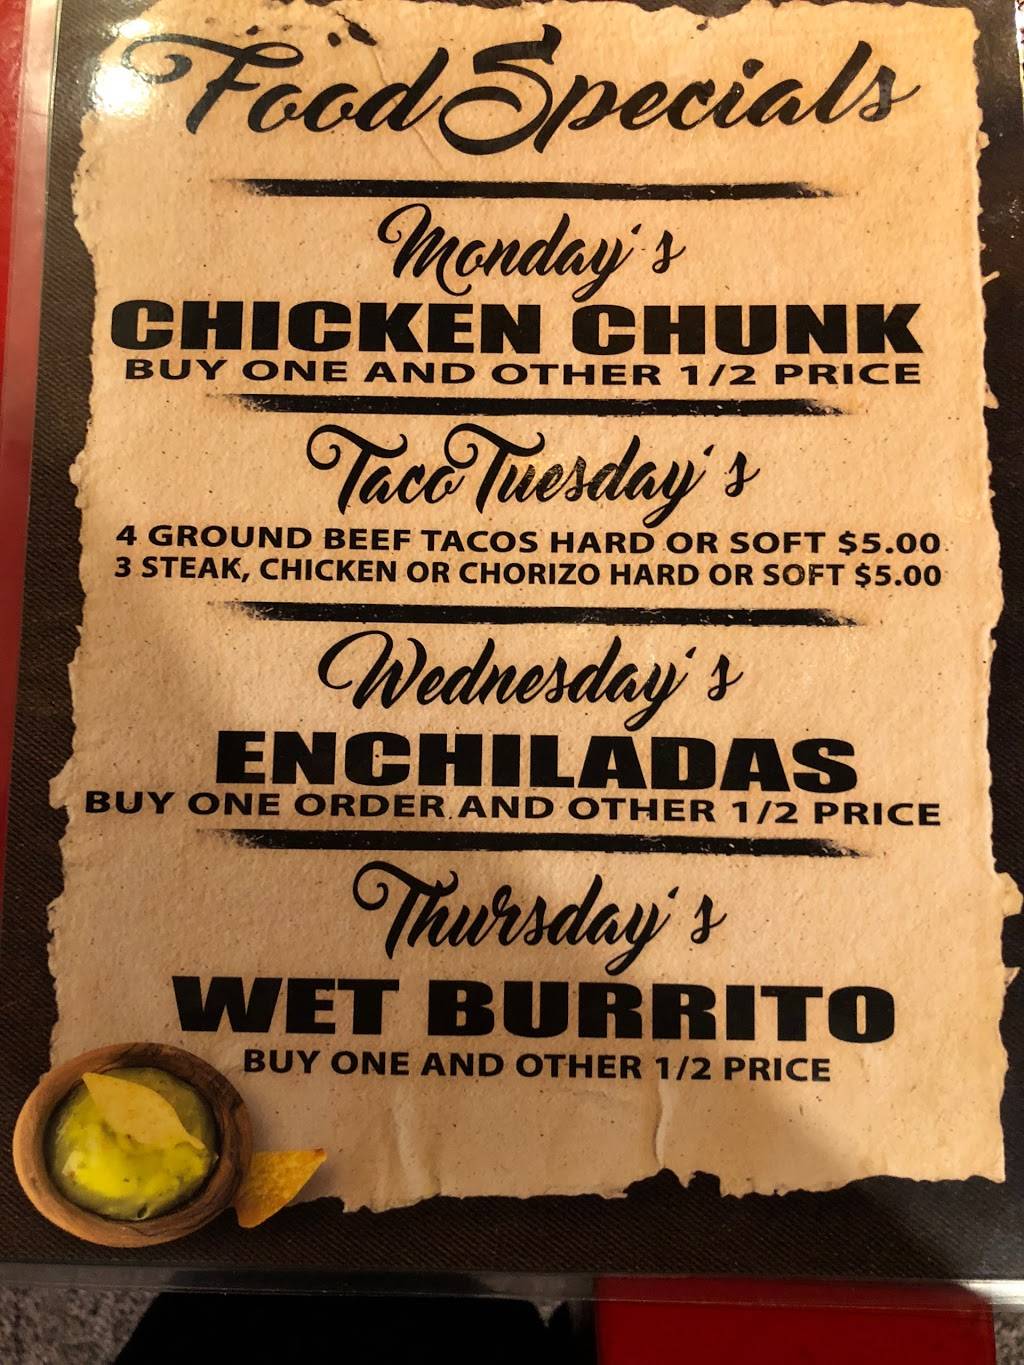 Food Specials
Monday's
CHICKEN CHUNK
BUY ONE AND OTHER 1/2 PRICE
Taco Tuesday's
4 GROUND BEEF TACOS HARD OR SOFT $5.00
3 STEAK, CHICKEN OR CHORIZO HARD OR SOFT $5.00
Wednesday's
ENCHILADAS
BUY ONE ORDER AND OTHER 1/2 PRICE
Thursday's
WET BURRITO
BUY ONE AND OTHER 1/2 PRICE